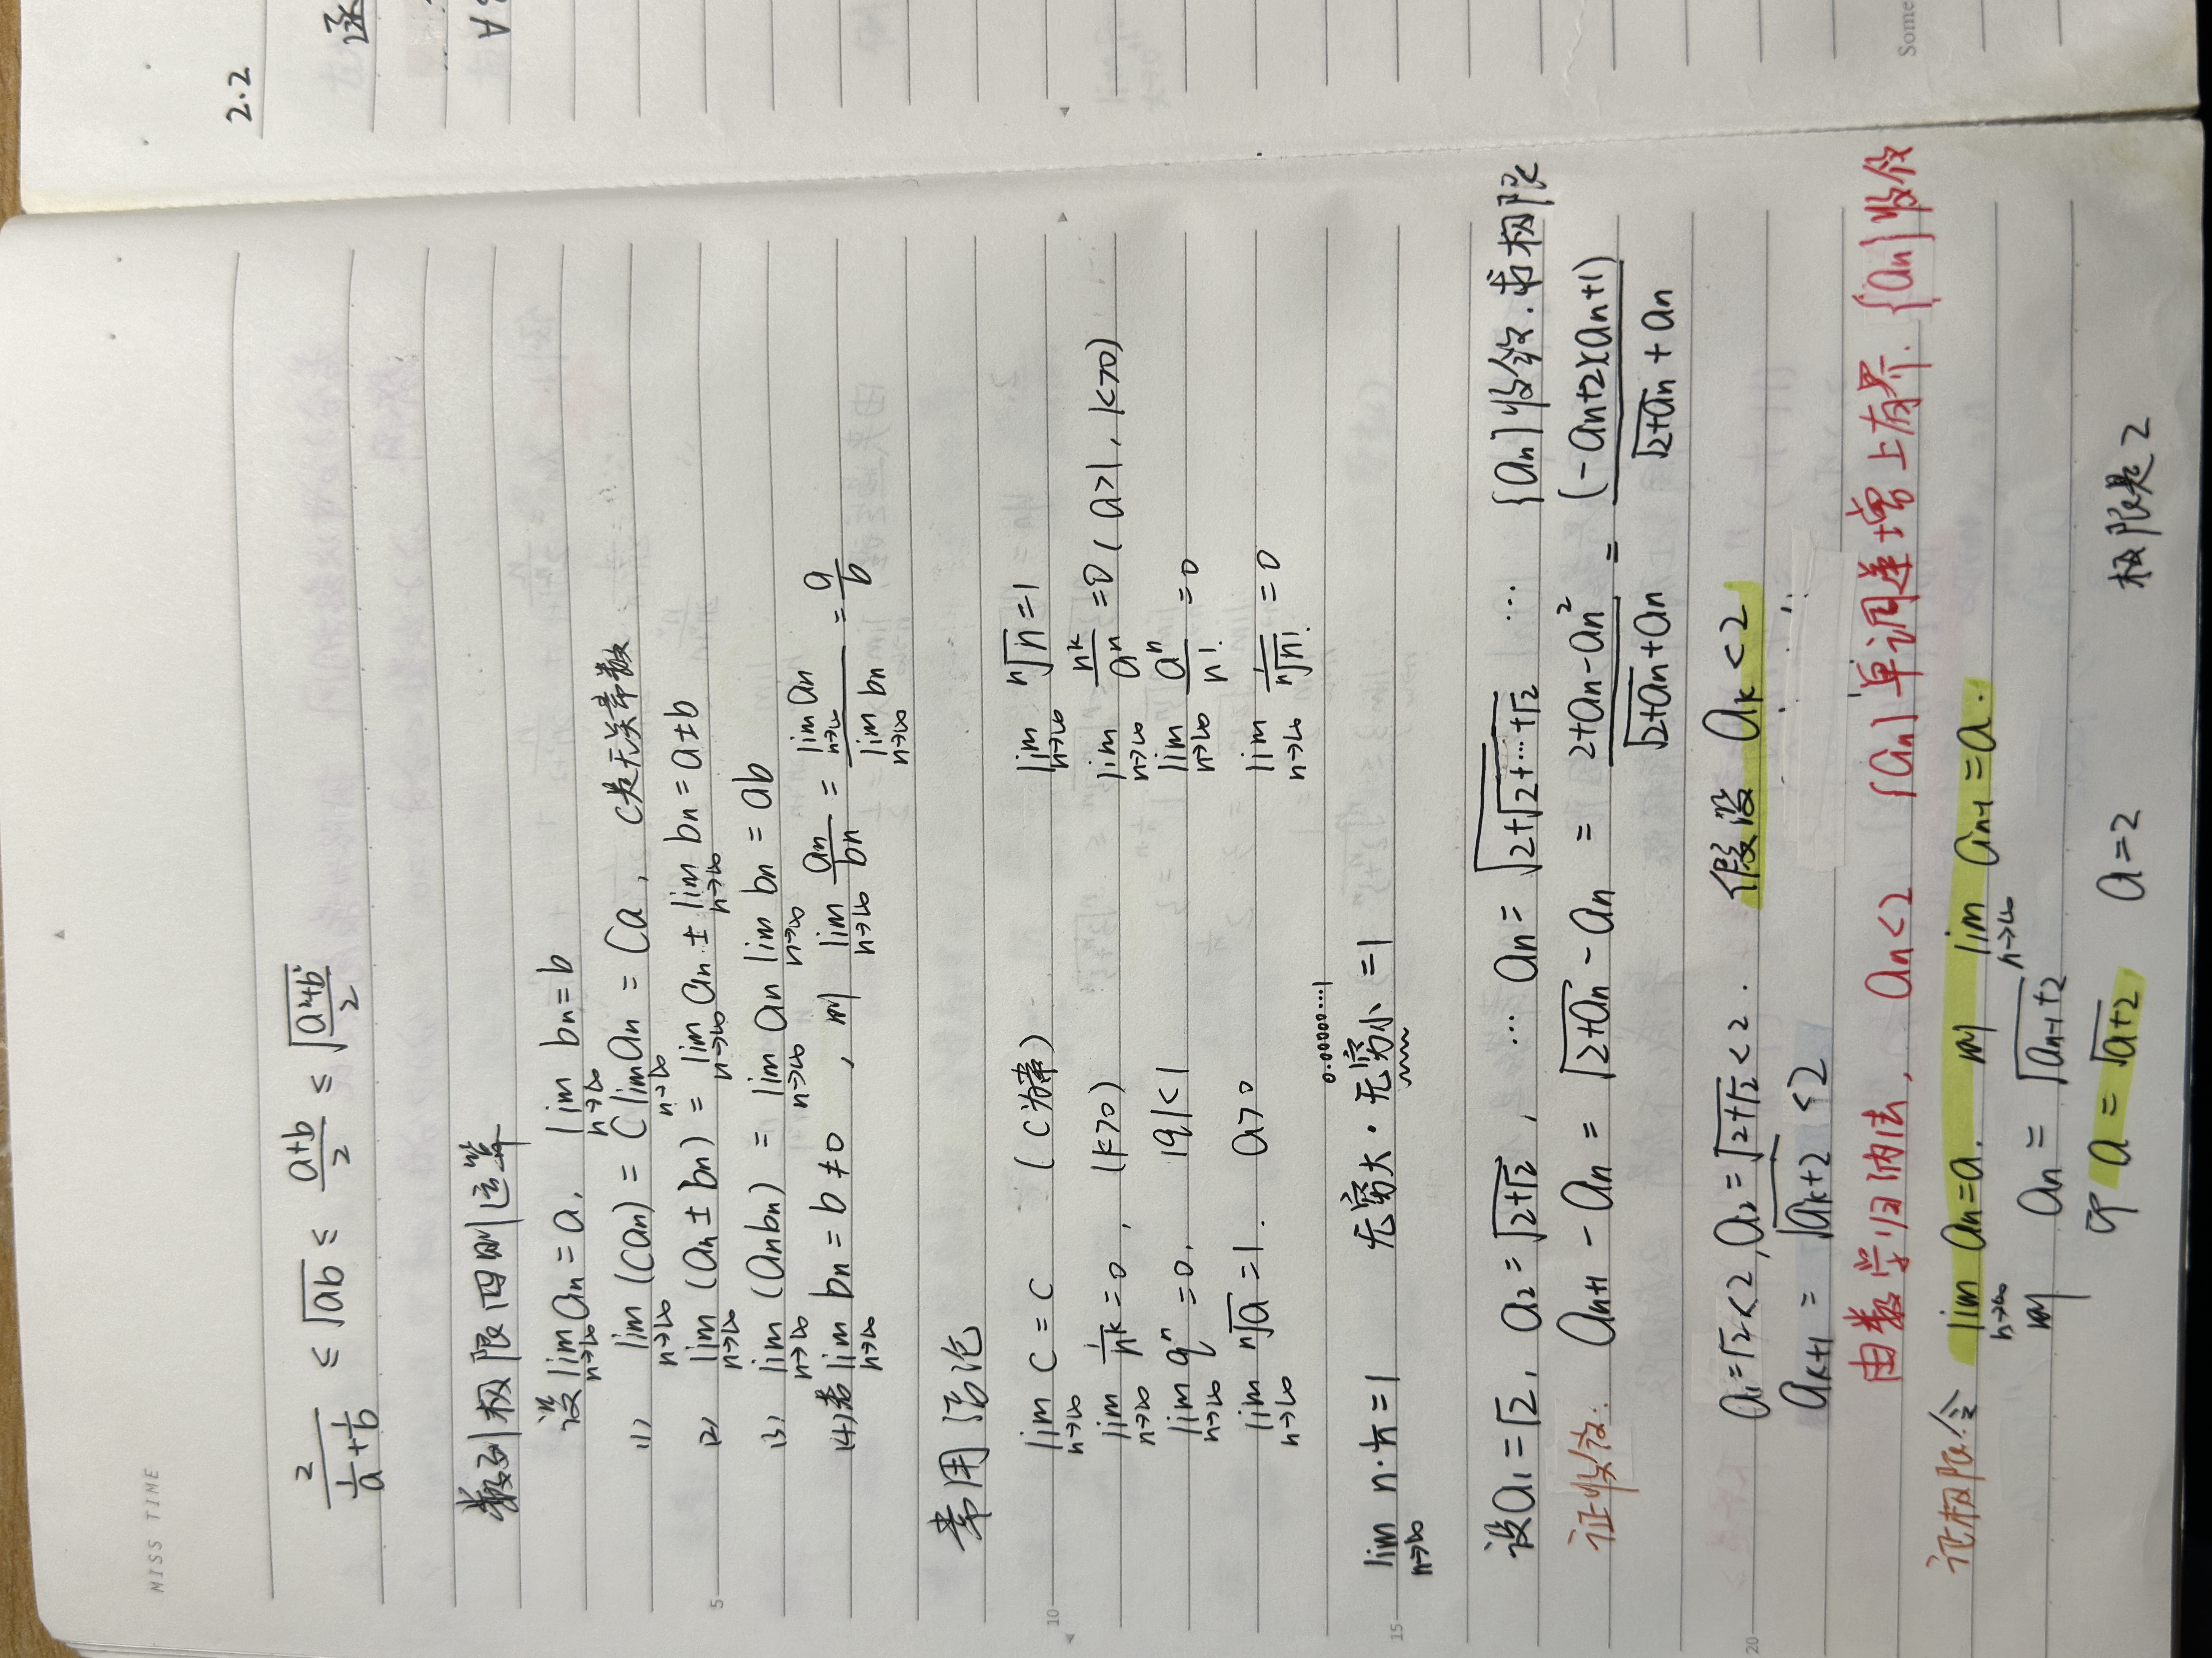 MISS TIME
2/(1/a+1/b) ≤ √(ab) ≤ (a+b)/2 ≤ √((a²+b²)/2)
数列极限四则运算
设 lim_{n→∞} an = a, lim_{n→∞} bn = b
(1) lim_{n→∞} (can) = C lim_{n→∞} an = Ca, C是无关常数
(2) lim_{n→∞} (an ± bn) = lim_{n→∞} an ± lim_{n→∞} bn = a±b
(3) lim_{n→∞} (anbn) = lim_{n→∞} an lim_{n→∞} bn = ab
(4) 若 lim_{n→∞} bn = b ≠ 0, 则 lim_{n→∞} an/bn = lim_{n→∞} an / lim_{n→∞} bn = a/b
常用结论
lim_{n→∞} C = C (C为常) lim_{n→∞} ⁿ√n = 1
lim_{n→∞} 1/n^k = 0, (k>0) lim_{n→∞} n^k/a^n = 0 (a>1, k>0)
lim_{n→∞} q^n = 0, |q|<1 lim_{n→∞} a^n/n! = 0
lim_{n→∞} ⁿ√a = 1. a>0 lim_{n→∞} 1/ⁿ√n! = 0
0.000000...1
lim_{n→∞} n·1/n = 1 无穷大·无穷小 = 1
设a1=√2, a2=√(2+√2), … an=√(2+√(2+…+√2)) … {an}收敛.求极限
证收敛: an+1 - an = √(2+an) - an = (2+an-an²)/(√(2+an)+an) = (-an+2)(an+1)/(√(2+an)+an)
a1=√2<2, a2=√(2+√2)<2. 假设 ak<2
ak+1 = √(ak+2) <2
由数学归纳法, an<2 {an}单调递增上有界. {an}收敛
证极限令 lim_{n→∞} an=a. 则 lim_{n→∞} an-1=a.
则 an = √(an-1+2)
即 a = √(a+2) a=2 极限是2
5
10
15
20
2.2
Some